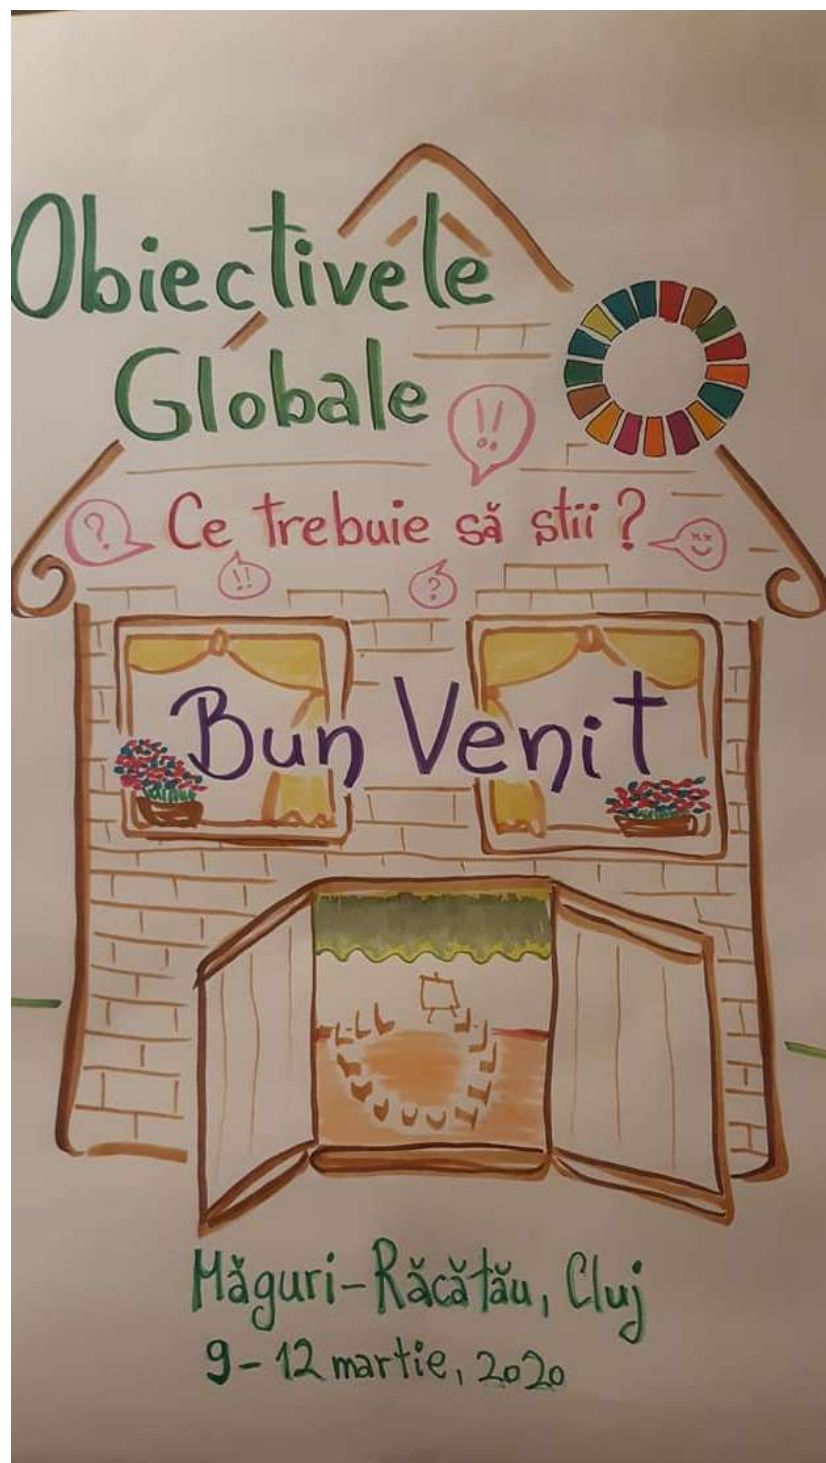 Obiectivele
Globale
!!
? Ce trebuie să stii ?
!! ?
Bun Venit
Măguri-Răcătău, Cluj
9-12 martie, 2020